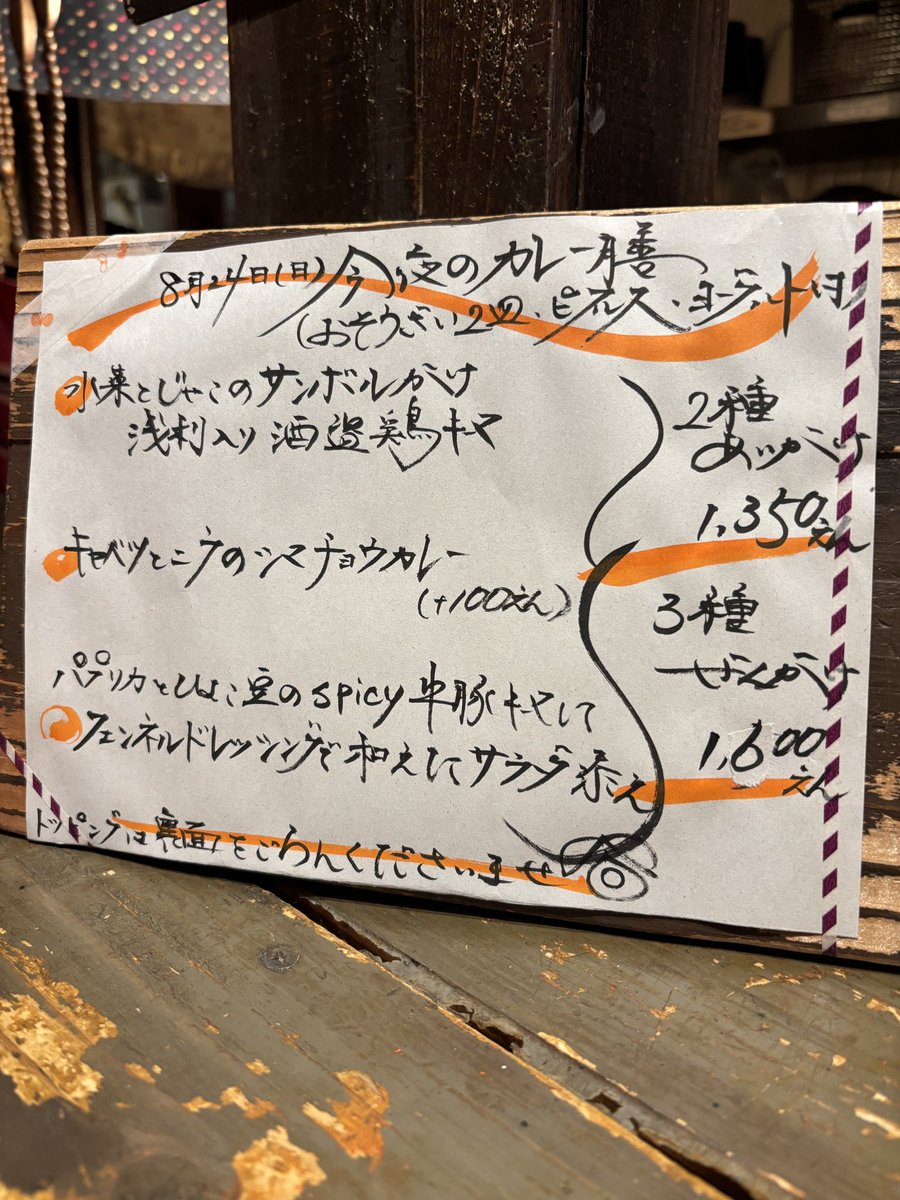 8月24日(日)今夜のカレー膳
(おそうざい2皿、ピクルス・ヨーグルト付
水菜とじゃこのサンボルがけ
浅利入り酒盗鶏キーマ
キャベツとニラのシマチョウカレー
(+100えん)
パプリカとひよこ豆のspicy牛豚キーマして
フェンネルドレッシングで和えたサラダ添え
2種
あいがけ
1,350えん
3種
ぜんがけ
1,600えん
トッピングは裏面をごらんくださいませ